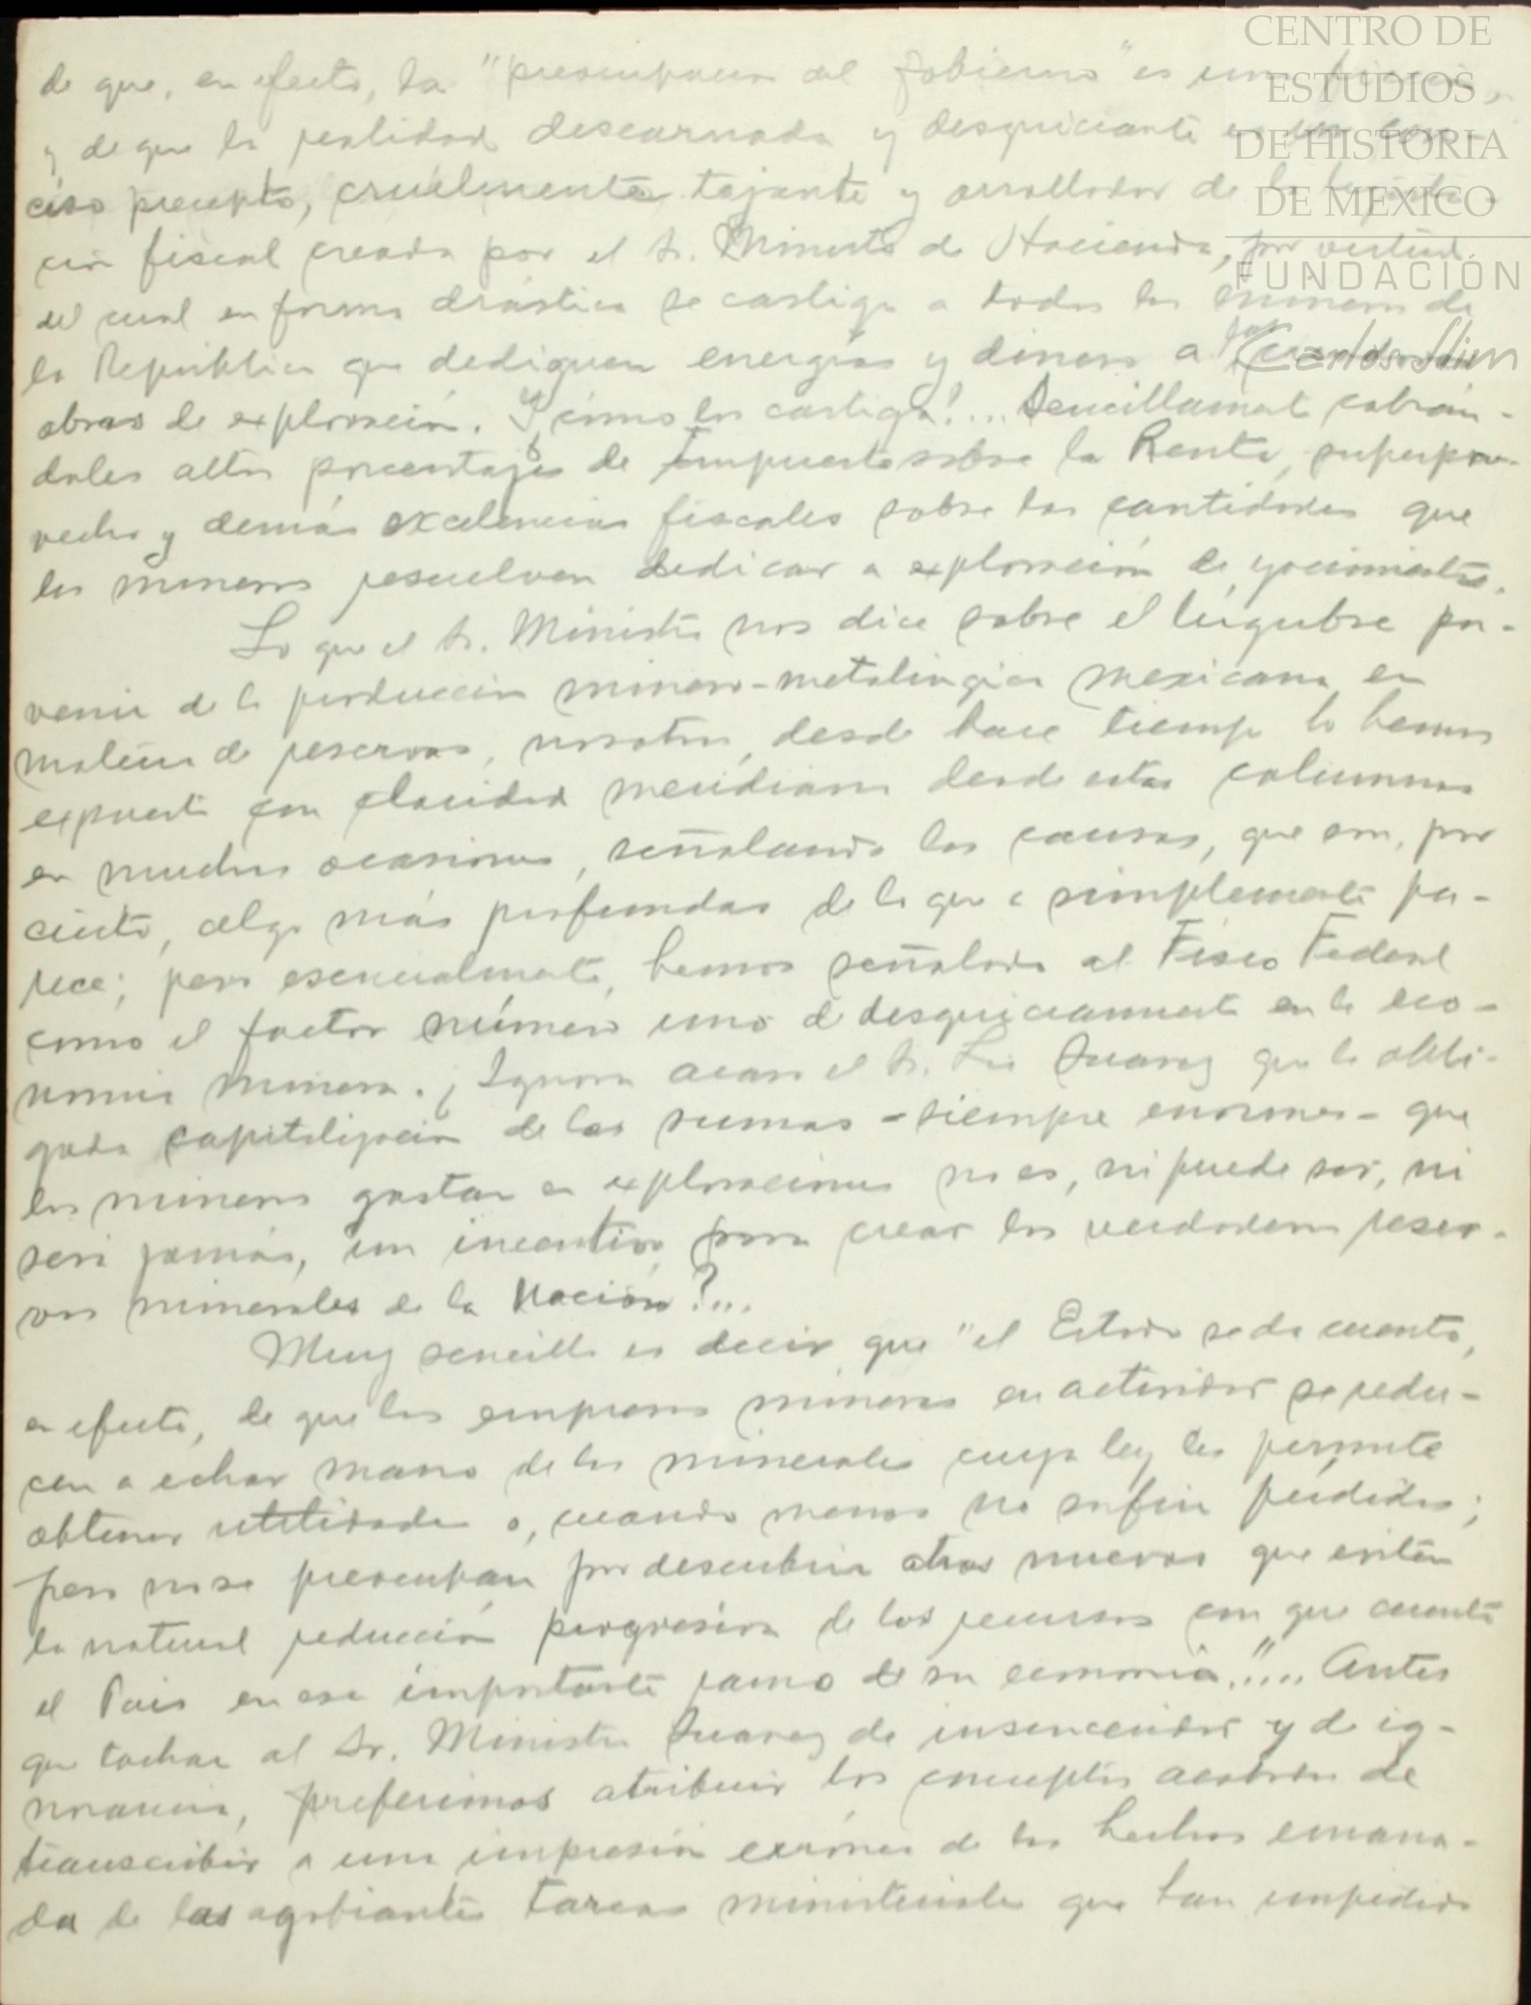 CENTRO DE
ESTUDIOS
DE HISTORIA
DE MEXICO
FUNDACIÓN
Carlos Slim
de que, en efecto, la "preocupacion del Gobierno" es una
y de que la realidad descarnada y desquiciante es un con-
ciso precepto, cruelmente tajante y arrollador de la legisla-
ción fiscal creada por el Sr. Ministro de Hacienda, por virtud
del cual en forma drástica se castiga a todos los mineros de
la República que dediquen energías y dinero a las
obras de exploración. Y ¿cómo los castiga?... Sencillamente cobrán-
doles altos porcentajes de Impuesto sobre la Renta, superpro-
vecho y demás excelencias fiscales sobre las cantidades que
los mineros resuelven dedicar a exploración de yacimientos.
Lo que el Sr. Ministro nos dice sobre el lúgubre por-
venir de la producción minero-metalúrgica mexicana en
materia de reservas, nosotros, desde hace tiempo lo hemos
expuesto con claridad meridiana desde estas columnas
en muchas ocasiones, señalando las causas, que son, por
cierto, algo más profundas de lo que simplemente pa-
rece; pero esencialmente, hemos señalado al Fisco Federal
como el factor número uno de desquiciamiento en la eco-
nomía minera. ¿Ignora acaso el Sr. Lic Suarez que la obli-
gada capitalización de las sumas - siempre enormes - que
los mineros gastan en exploraciones no es, ni puede ser, ni
será jamás, un incentivo para crear las verdaderas reser-
vas minerales de la Nación?...
Muy sencillo es decir que "el Estado se da cuenta,
en efecto, de que las empresas mineras en actividad se redu-
cen a echar mano de los minerales cuya ley les permite
obtener utilidades o, cuando menos no sufrir pérdidas;
pero no se preocupan por descubrir otros nuevos que eviten
la natural reducción progresiva de los recursos con que cuenta
el País en ese importante ramo de su economía."... Antes
que tachar al Sr. Ministro Suarez de insinceridad y de ig-
norancia, preferimos atribuir los conceptos acabados de
transcribir a una impresión errónea de los hechos emana-
da de las agobiantes tareas ministeriales que han impedido